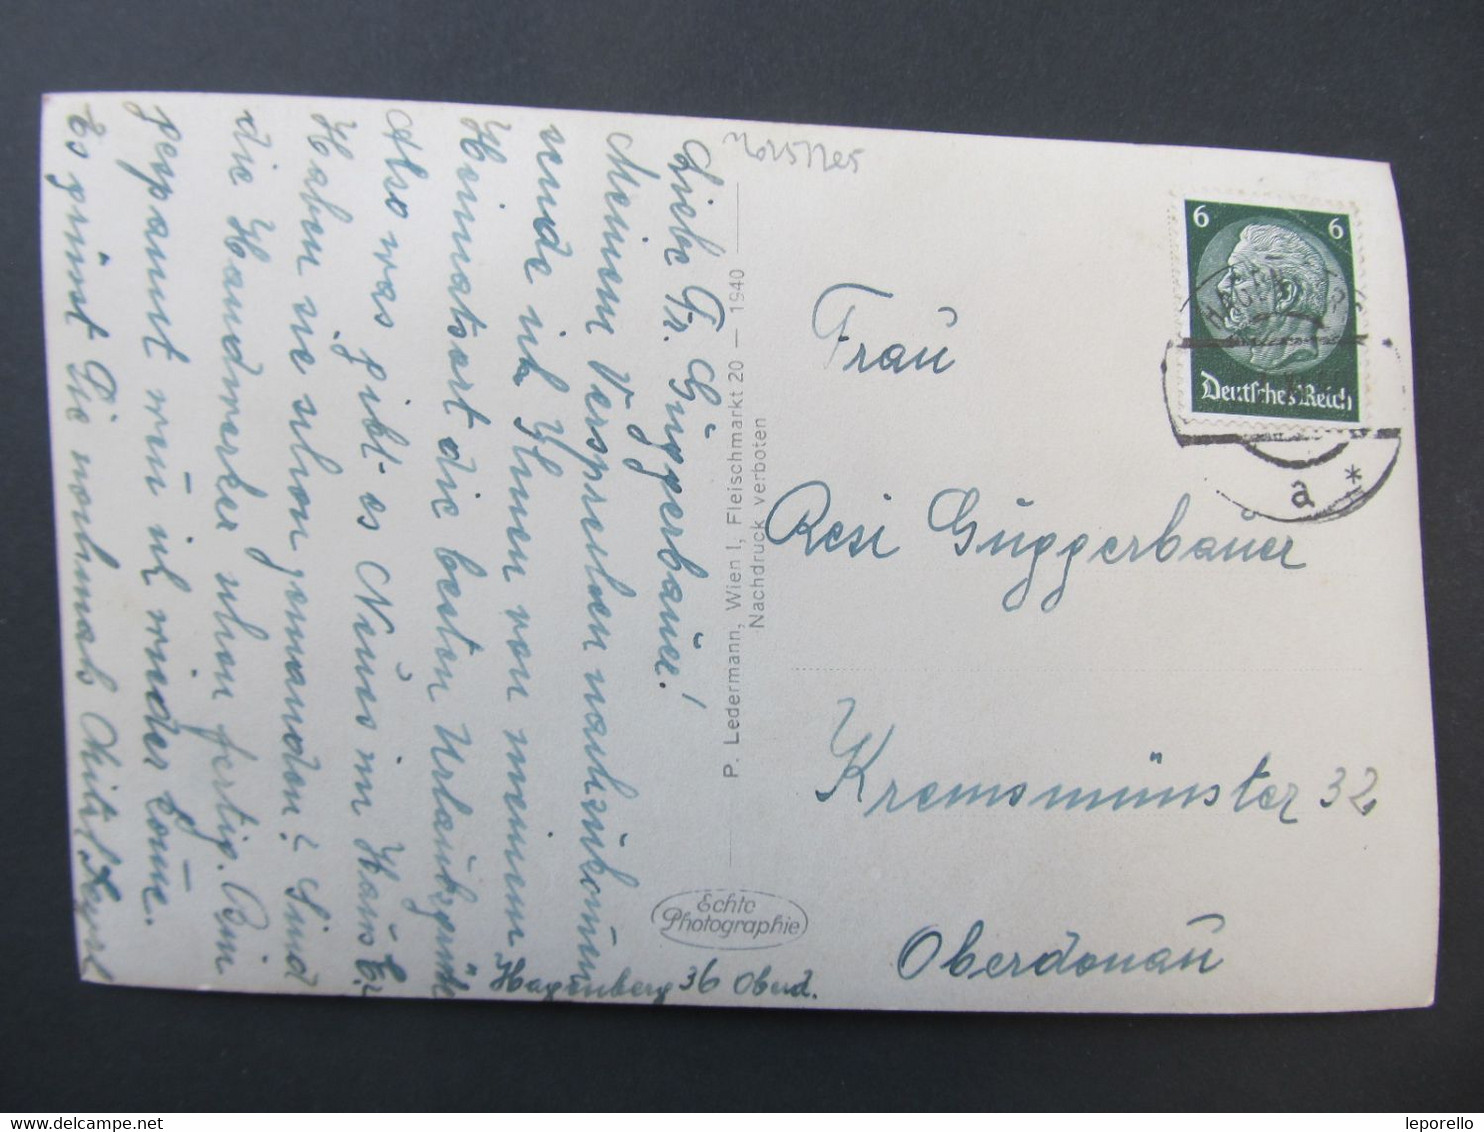 Liebe Fr. Güggerbauer!
Meinem Versprechen nachzukommen
sende ich Ihnen von meinem
Heimatsort die besten Urlaubsgrüße
Also was gibt es Neues im Haus Er
Haben sie schon jemanden? Sind
die Handwerker schon fertig. Bin
gespannt wenn ich wieder komme.
Es grüsst Sie nochmals
Hagenberg 36 Oberd.
P. Ledermann, Wien I, Fleischmarkt 20 — 1940
Nachdruck verboten
Echte
Photographie
6 6
Deutsches Reich
a *
Frau
Resi Güggerbauer
Kremsmünster 32
Oberdonau
leporello